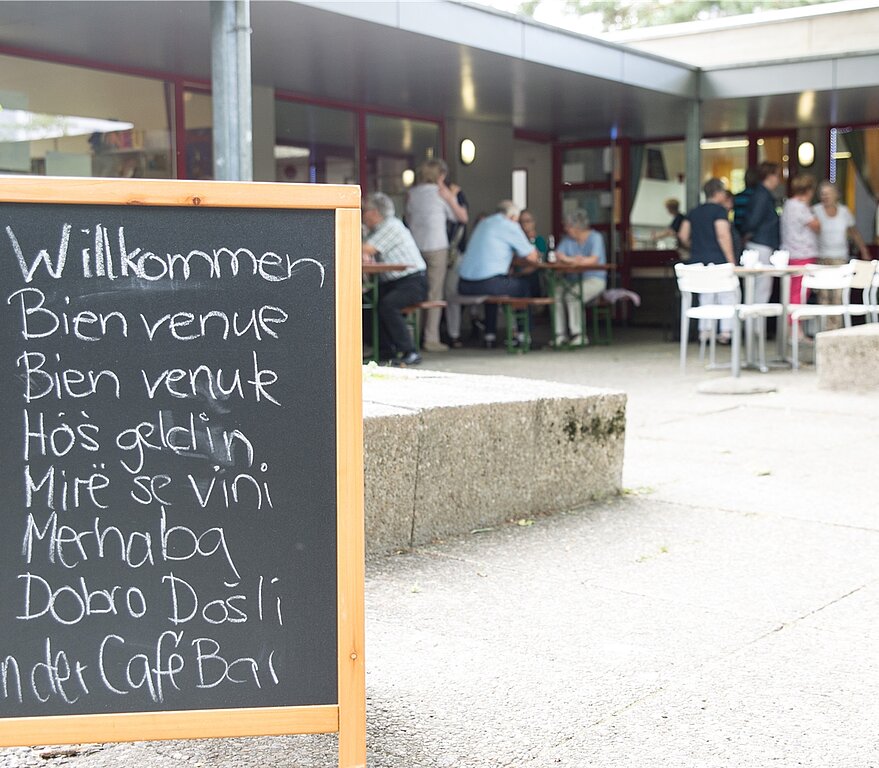 Willkommen
Bien venue
Bien venuk
Hös geldin
Mirë se vini
Merhaba
Dobro Došli
n der Café Bar